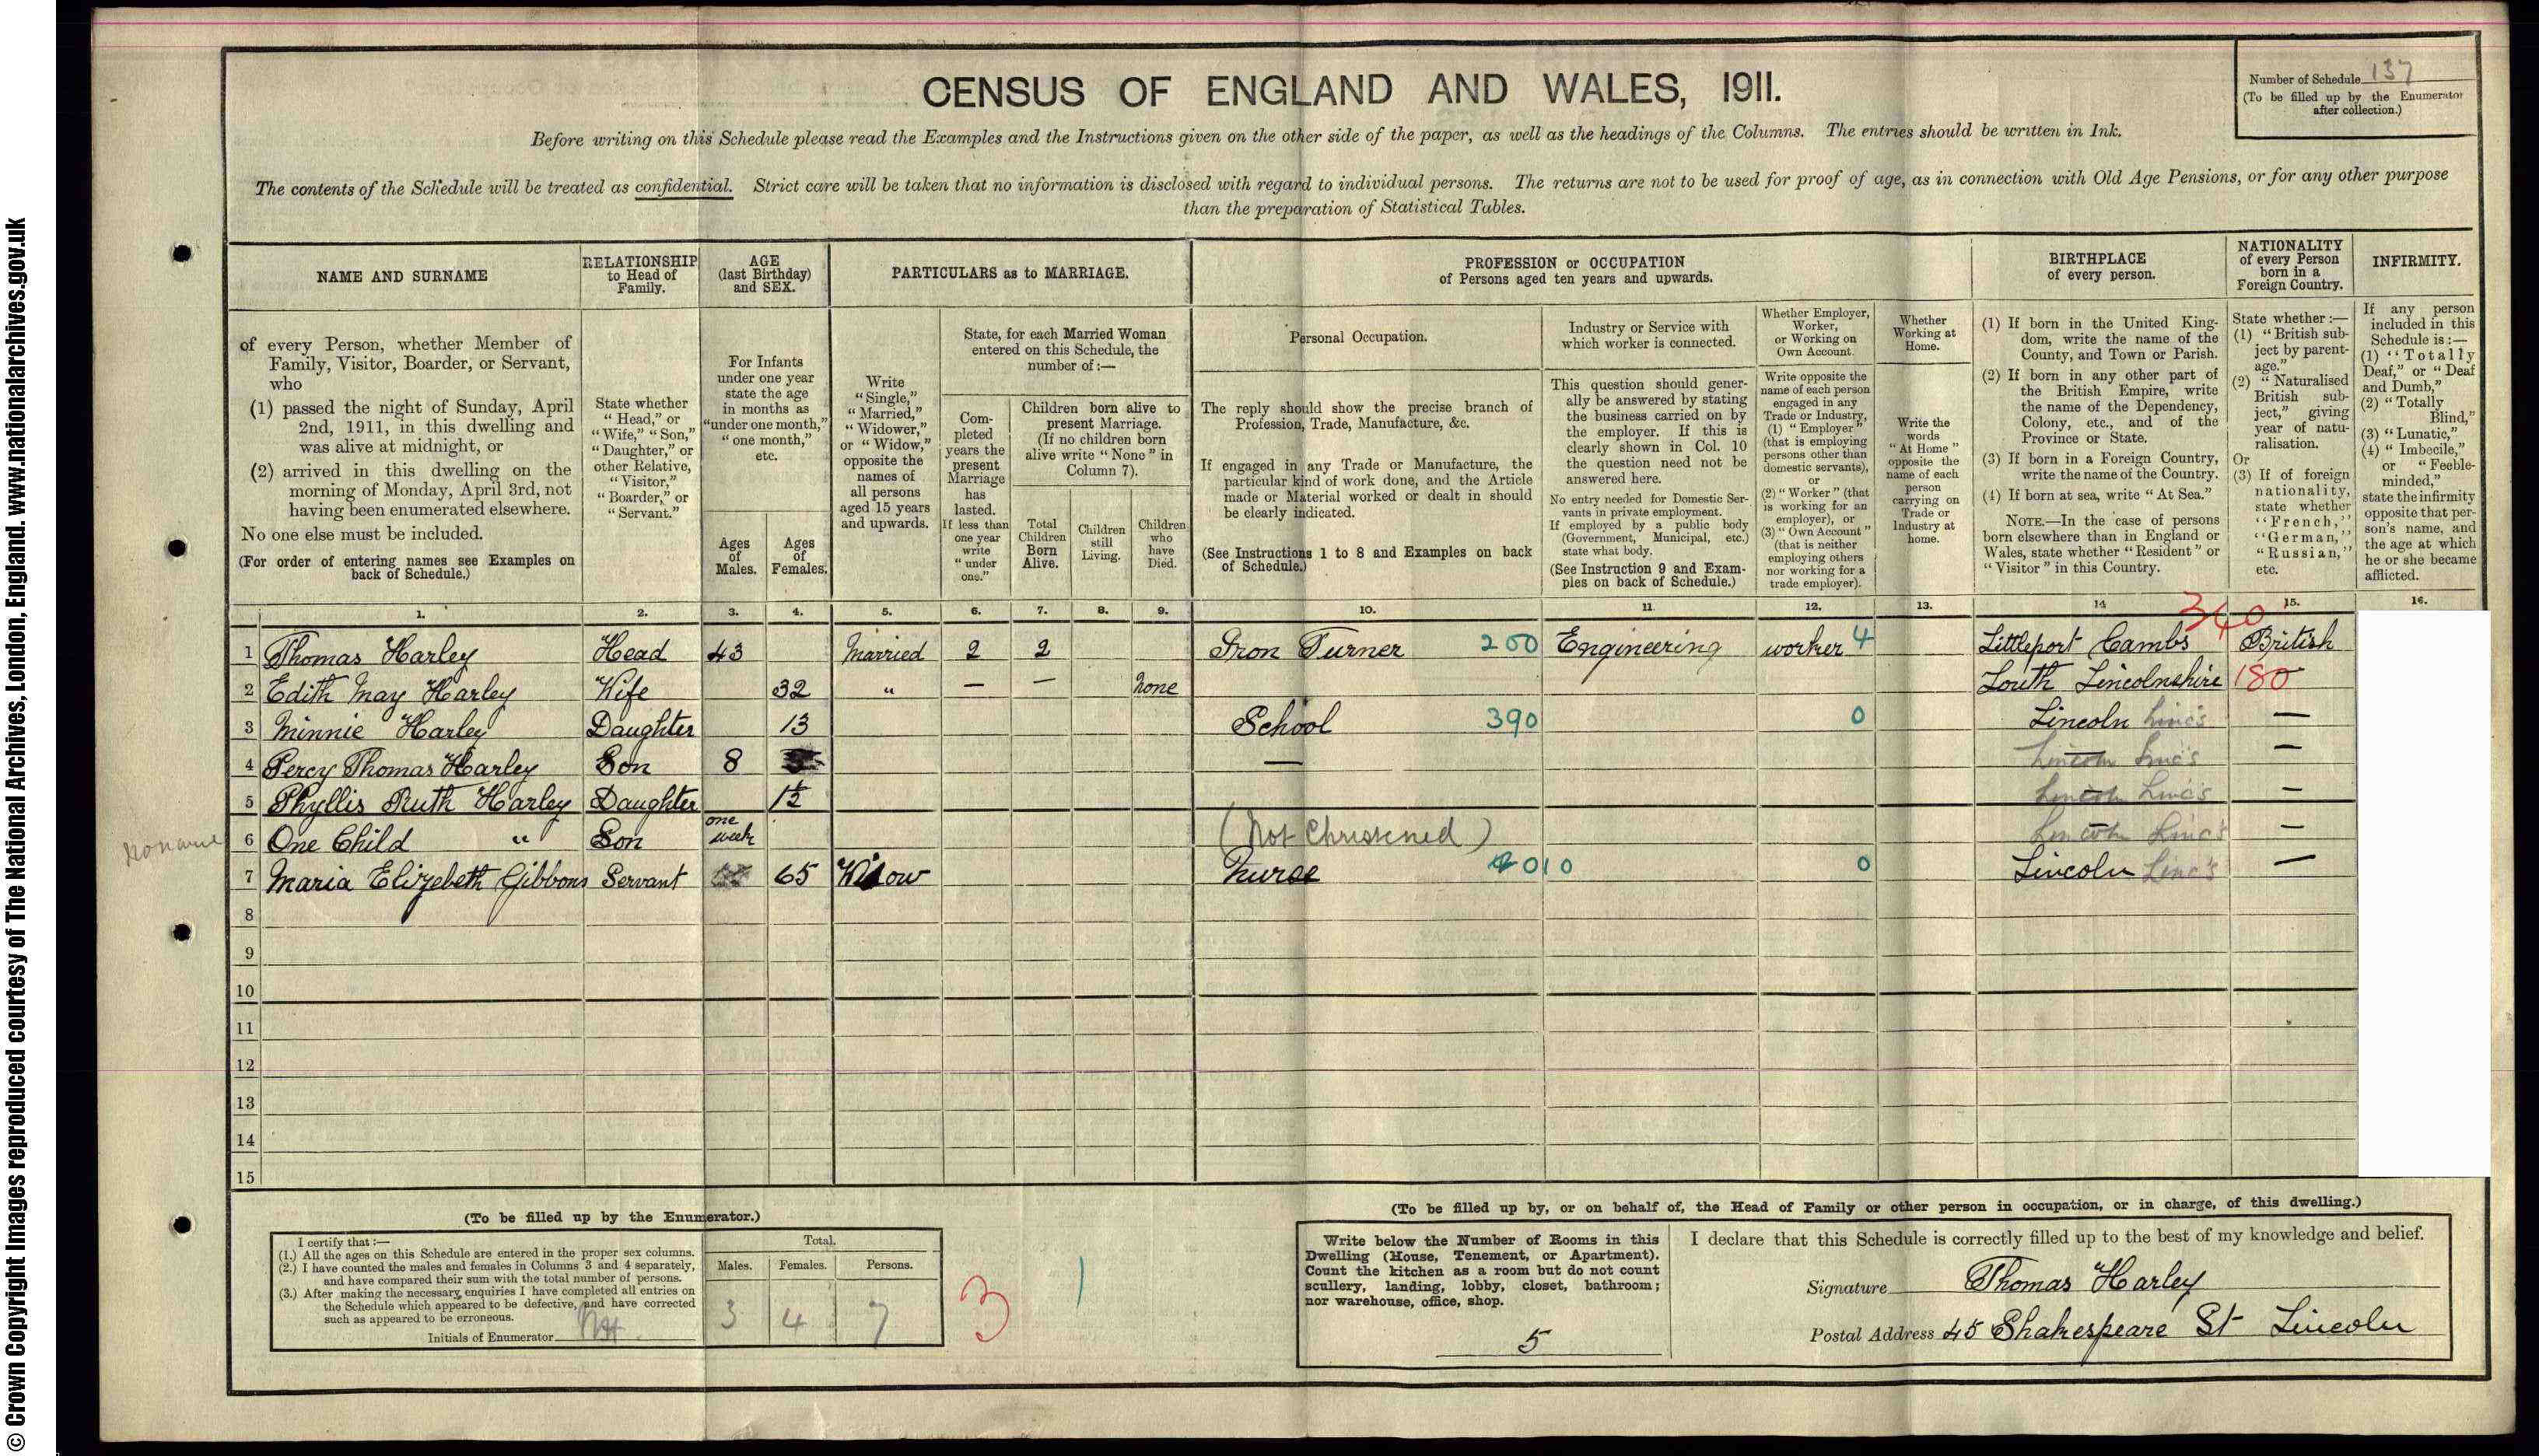 © Crown Copyright Images reproduced courtesy of The National Archives, London, England. www.nationalarchives.gov.uk
CENSUS OF ENGLAND AND WALES, 1911.
Number of Schedule 137
(To be filled up by the Enumerator after collection.)
Before writing on this Schedule please read the Examples and the Instructions given on the other side of the paper, as well as the headings of the Columns. The entries should be written in Ink.
The contents of the Schedule will be treated as confidential. Strict care will be taken that no information is disclosed with regard to individual persons. The returns are not to be used for proof of age, as in connection with Old Age Pensions, or for any other purpose
than the preparation of Statistical Tables.
NAME AND SURNAME
of every Person, whether Member of
Family, Visitor, Boarder, or Servant,
who
(1) passed the night of Sunday, April
2nd, 1911, in this dwelling and
was alive at midnight, or
(2) arrived in this dwelling on the
morning of Monday, April 3rd, not
having been enumerated elsewhere.
No one else must be included.
(For order of entering names see Examples on
back of Schedule.)
RELATIONSHIP
to Head of
Family.
State whether
"Head," or
"Wife," "Son,"
"Daughter," or
other Relative,
"Visitor,"
"Boarder," or
"Servant."
AGE
(last Birthday)
and SEX.
For Infants
under one year
state the age
in months as
"under one month,"
"one month,"
etc.
Ages
of
Males.
Ages
of
Females.
PARTICULARS as to MARRIAGE.
Write
"Single,"
"Married,"
"Widower,"
or "Widow,"
opposite the
names of
all persons
aged 15 years
and upwards.
State, for each Married Woman
entered on this Schedule, the
number of:—
Com-
pleted
years the
present
Marriage
has
lasted.
If less than
one year
write
"under
one."
Children born alive to
present Marriage.
(If no children born
alive write "None" in
Column 7).
Total
Children
Born
Alive.
Children
still
Living.
Children
who
have
Died.
PROFESSION or OCCUPATION
of Persons aged ten years and upwards.
Personal Occupation.
The reply should show the precise branch of
Profession, Trade, Manufacture, &c.
If engaged in any Trade or Manufacture, the
particular kind of work done, and the Article
made or Material worked or dealt in should
be clearly indicated.
(See Instructions 1 to 8 and Examples on back
of Schedule.)
Industry or Service with
which worker is connected.
This question should gener-
ally be answered by stating
the business carried on by
the employer. If this is
clearly shown in Col. 10
the question need not be
answered here.
No entry needed for Domestic Ser-
vants in private employment.
If employed by a public body
(Government, Municipal, etc.)
state what body.
(See Instruction 9 and Exam-
ples on back of Schedule.)
Whether Employer,
Worker,
or Working on
Own Account.
Write opposite the
name of each person
engaged in any
Trade or Industry,
(1) "Employer"
(that is employing
persons other than
domestic servants),
or
(2) "Worker" (that
is working for an
employer), or
(3) "Own Account"
(that is neither
employing others
nor working for a
trade employer).
Whether
Working at
Home.
Write the
words
"At Home"
opposite the
name of each
person
carrying on
Trade or
Industry at
home.
BIRTHPLACE
of every person.
(1) If born in the United King-
dom, write the name of the
County, and Town or Parish.
(2) If born in any other part of
the British Empire, write
the name of the Dependency,
Colony, etc., and of the
Province or State.
(3) If born in a Foreign Country,
write the name of the Country.
(4) If born at sea, write "At Sea."
NOTE.—In the case of persons
born elsewhere than in England or
Wales, state whether "Resident" or
"Visitor" in this Country.
NATIONALITY
of every Person
born in a
Foreign Country.
State whether:—
(1) "British sub-
ject by parent-
age."
(2) "Naturalised
British sub-
ject," giving
year of natu-
ralisation.
Or
(3) If of foreign
nationality,
state whether
"French,"
"German,"
"Russian,"
etc.
INFIRMITY.
If any person
included in this
Schedule is:—
(1) "Totally
Deaf," or "Deaf
and Dumb,"
(2) "Totally
Blind,"
(3) "Lunatic,"
(4) "Imbecile,"
or "Feeble-
minded,"
state the infirmity
opposite that per-
son's name, and
the age at which
he or she became
afflicted.
1. 2. 3. 4. 5. 6. 7. 8. 9. 10. 11 12. 13. 14 15. 16.
340
1 Thomas Harley Head 43 Married 2 2 Iron Turner 200 Engineering worker 4 Littleport Cambs British
2 Edith May Harley Wife 32 " — — None Louth Lincolnshire 180
3 Minnie Harley Daughter 13 School 390 0 Lincoln Linc's —
4 Percy Thomas Harley Son 8 — Lincoln Linc's —
5 Phyllis Ruth Harley Daughter 1½ Lincoln Linc's —
No name 6 One Child " Son one week (Not Christened) Lincoln Linc's —
7 Maria Elizebeth Gibbons Servant 65 Widow Nurse 2010 0 Lincoln Linc's —
8
9
10
11
12
13
14
15
(To be filled up by the Enumerator.)
I certify that:—
(1.) All the ages on this Schedule are entered in the proper sex columns.
(2.) I have counted the males and females in Columns 3 and 4 separately,
and have compared their sum with the total number of persons.
(3.) After making the necessary enquiries I have completed all entries on
the Schedule which appeared to be defective, and have corrected
such as appeared to be erroneous.
Initials of Enumerator
Total.
Males. Females. Persons.
3 4 7
3 1
(To be filled up by, or on behalf of, the Head of Family or other person in occupation, or in charge, of this dwelling.)
Write below the Number of Rooms in this
Dwelling (House, Tenement, or Apartment).
Count the kitchen as a room but do not count
scullery, landing, lobby, closet, bathroom;
nor warehouse, office, shop.
5
I declare that this Schedule is correctly filled up to the best of my knowledge and belief.
Signature Thomas Harley
Postal Address 45 Shakespeare St Lincoln